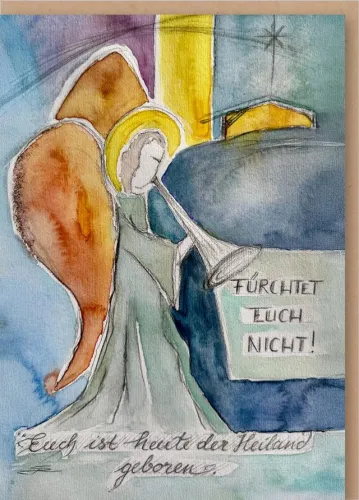 FÜRCHTET
EUCH
NICHT!
Euch ist heute der Heiland
geboren.